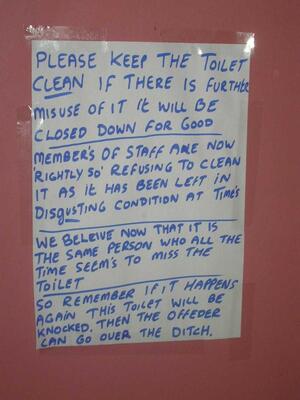 PLEASE KEEP THE TOILET
CLEAN IF THERE IS FURTHER
MISUSE OF IT It WILL BE
CLOSED DOWN FOR GOOD
MEMBER'S OF STAFF ARE NOW
RIGHTLY SO' REFUSING TO CLEAN
IT AS It HAS BEEN LEFT IN
DISGUSTING CONDITION AT TIME'S
WE BELREIVE NOW THAT IT IS
THE SAME PERSON WHO ALL THE
TIME SEEM'S TO MISS THE
TOILET
SO REMEMBER IF IT HAPPENS
AGAIN THIS TOILET WILL BE
KNOCKED. THEN THE OFFEDER
CAN GO OVER THE DITCH.